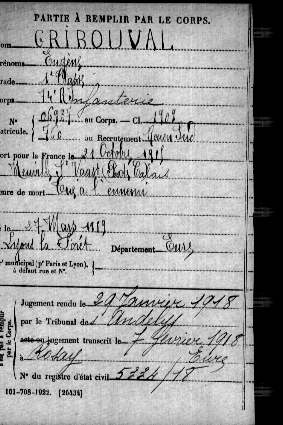 PARTIE À REMPLIR PAR LE CORPS.
Nom GRIBOUVAL
Prénoms Eugène
Grade
Corps 74e R. Infanterie
N° 06927 au Corps. — Cl. 1908
Matricule. 760 au Recrutement Rouen Sud
Mort pour la France le 21 Octobre 1915
Neuville St Vaast Pas de Calais
Genre de mort Tué à l'ennemi
Né le 27 Mars 1889
Lyons la Forêt Département Eure
municipal (pr Paris et Lyon),
à défaut rue et N°.
Jugement rendu le 29 Janvier 1918
par le Tribunal des Andelys
acte ou jugement transcrit le 7 février 1918
à Rosay Eure
N° du registre d'état civil 5334/18
101-708-1922. [26434]